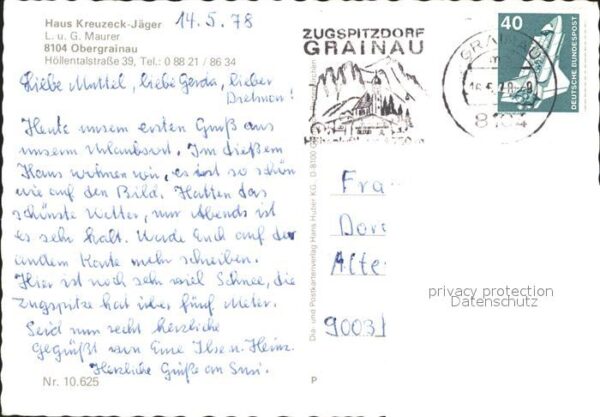 Haus Kreuzeck-Jäger
14.5.78
L. u. G. Maurer
8104 Obergrainau
Höllentalstraße 39, Tel.: 0 88 21 / 86 34
Liebe Muttel, liebe Gerda, lieber
Dietmar!
Heute unsern ersten Gruß aus
unserem Urlaubsort. Im dießem
Haus wohnen wir, es ist so schön
wie auf den Bild. Hatten das
schönste Wetter, nur Abends ist
es sehr kalt. Werde Euch auf der
andern Karte mehr schreiben.
Hier ist noch sehr viel Schnee, die
Zugspitze hat über fünf Meter.
Seid nun recht herzliche
gegrüßt von Eure Ilse u. Heinz.
Herzliche Grüße an
Nr. 10.625
ZUGSPITZDORF
GRAINAU
GRAINAU
8104
40
DEUTSCHE BUNDESPOST
Dia- und Postkartenverlag Hans Huber KG. D-8100
Fra
Dor
Alte
9003
P
privacy protection
Datenschutz